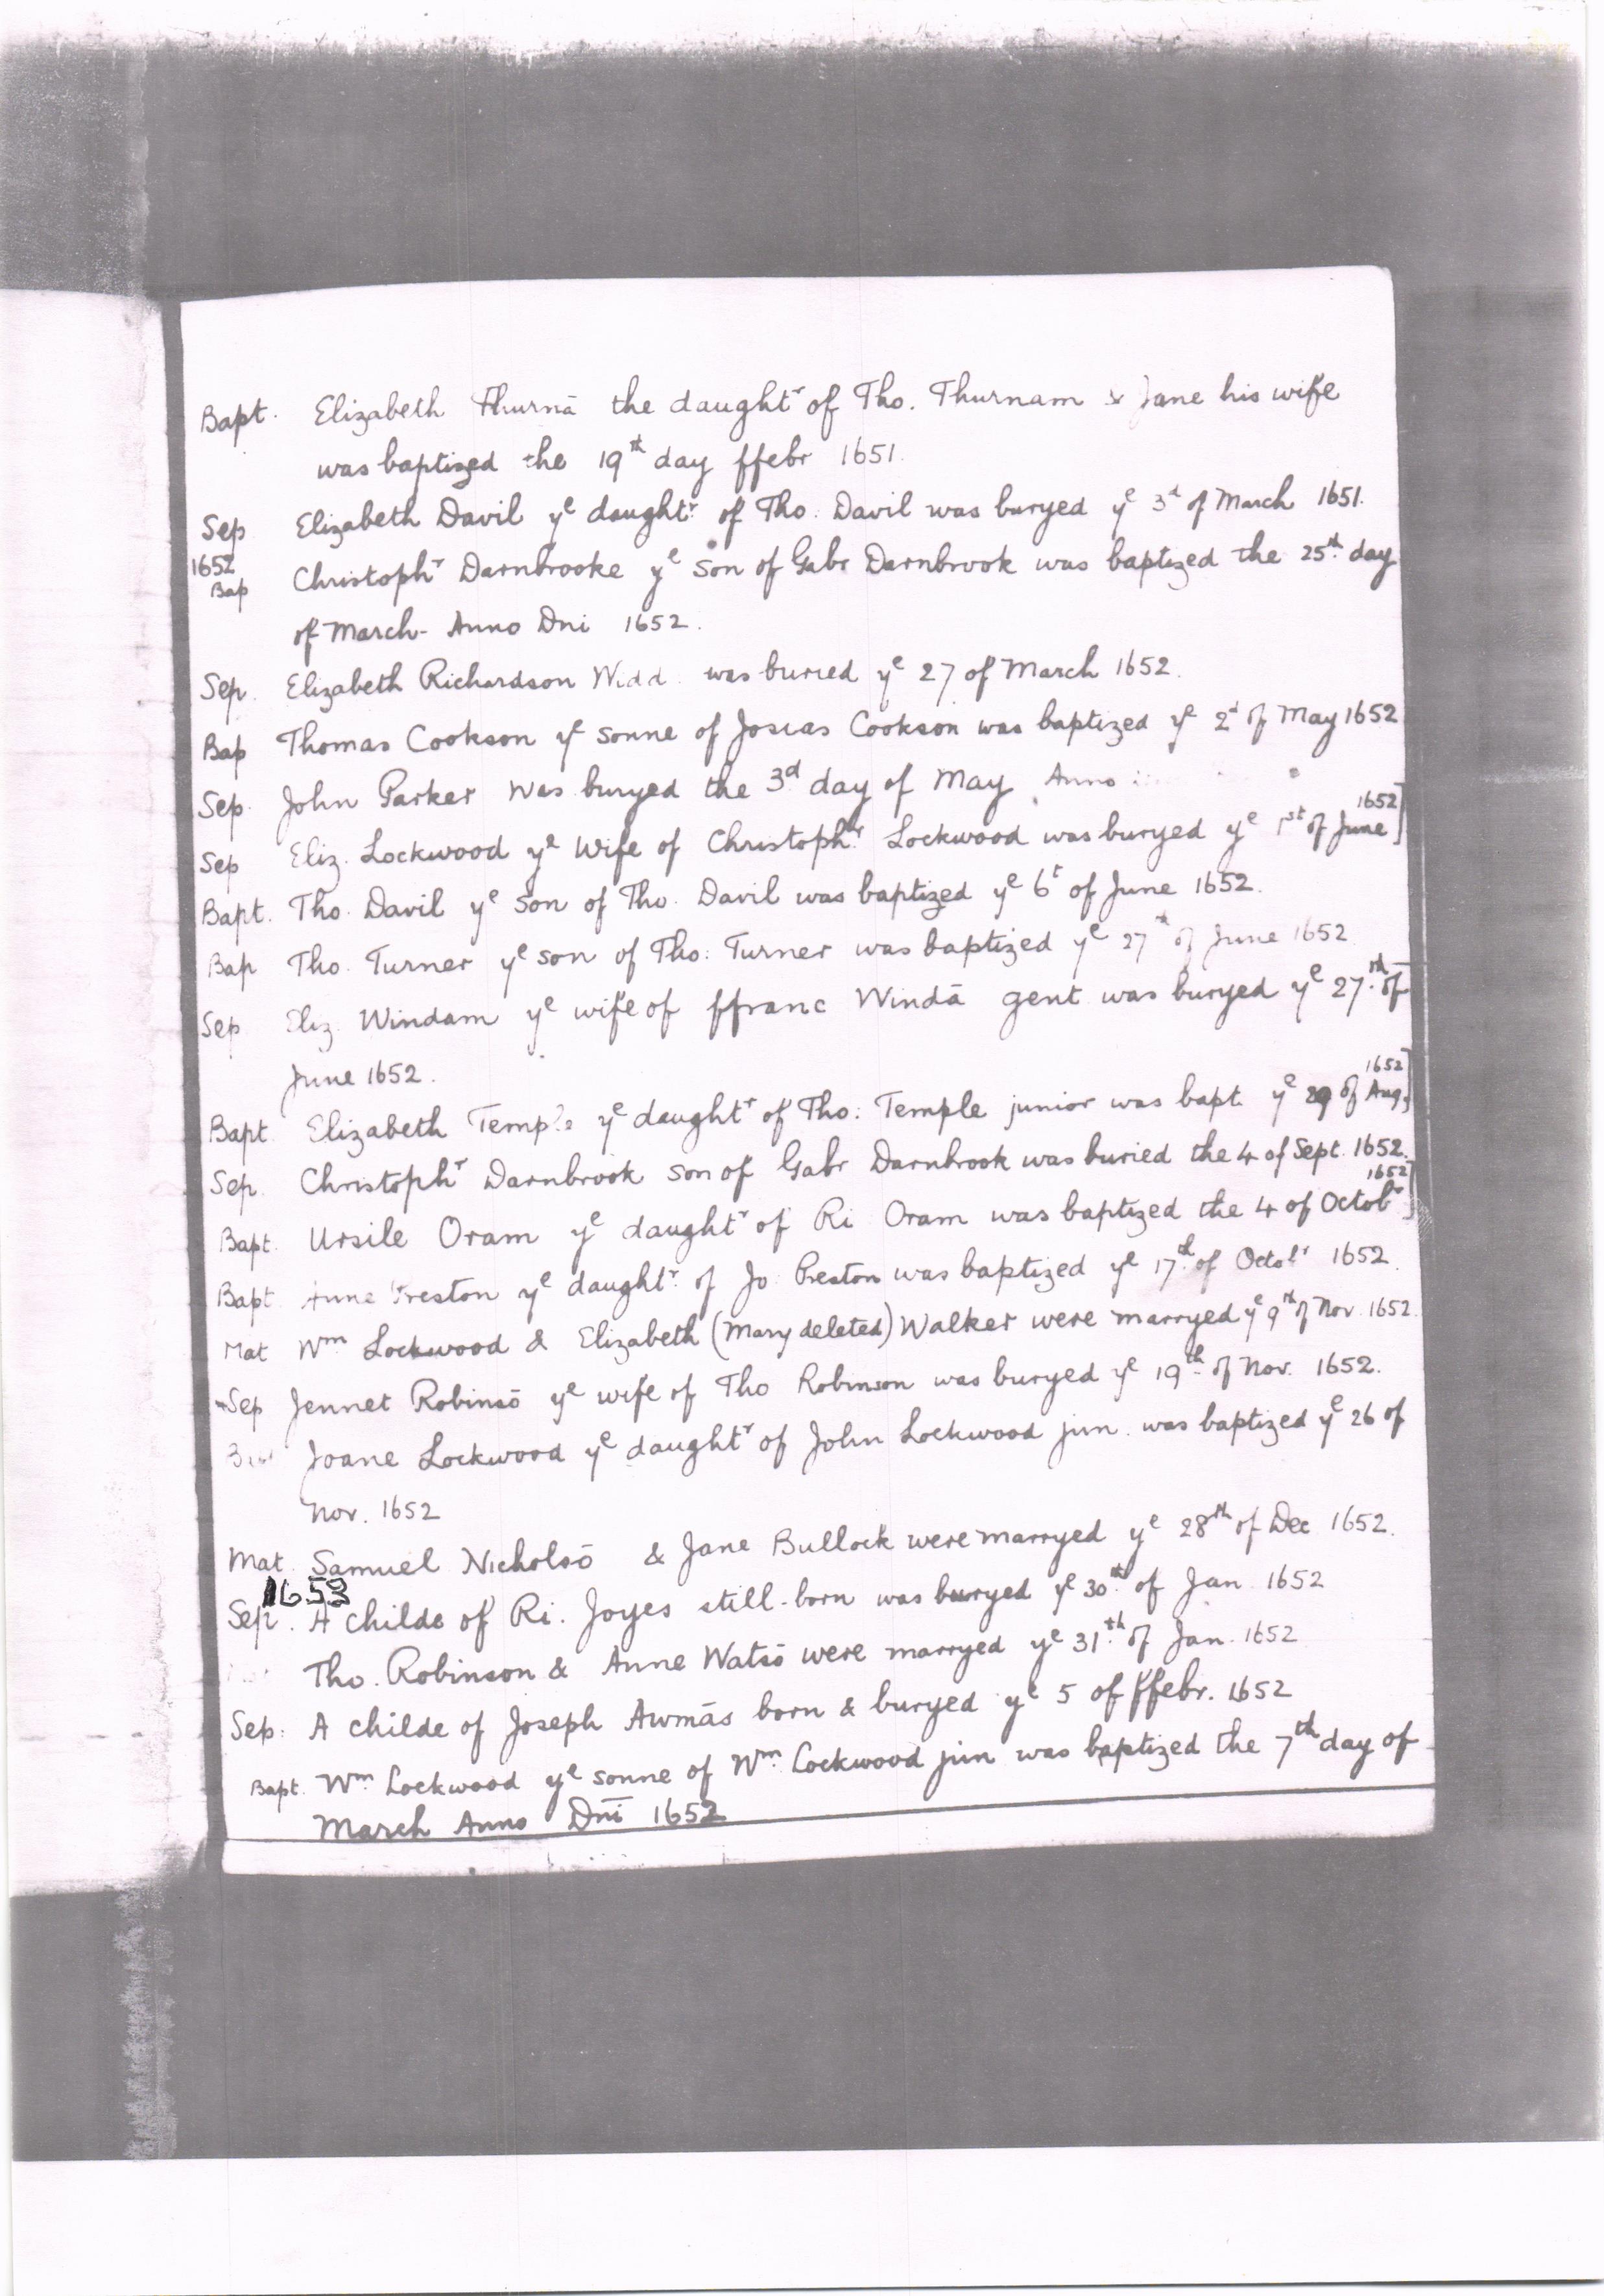 Bapt. Elizabeth Thurnā the daughtr of Tho. Thurnam & Jane his wife
was baptized the 19th day ffebr 1651.
Sep Elizabeth Davil ye daughtr of Tho. Davil was buryed ye 3d of March 1651.
1652
Bap Christophr Darnbrooke ye son of Gabr Darnbrook was baptized the 25th day
of March - Anno Dni 1652.
Sep. Elizabeth Richardson Widd. was buried ye 27 of March 1652.
Bap Thomas Cookson ye sonne of Josias Cookson was baptized ye 2d of May 1652
Sep. John Parker was buryed the 3d day of May Anno
1652]
Sep Eliz. Lockwood ye wife of Christophr Lockwood was buryed ye 1st of June
Bapt. Tho. Davil ye son of Tho. Davil was baptized ye 6t of June 1652.
Bap Tho. Turner ye son of Tho: Turner was baptized ye 27th of June 1652
Sep Eliz Windam ye wife of ffranc Windā gent was buryed ye 27th of
June 1652.
1652]
Bapt Elizabeth Temple ye daughtr of Tho: Temple junior was bapt. ye 29 of Aug,
Sep. Christophr Darnbrook son of Gabr Darnbrook was buried the 4 of Sept. 1652.
1652]
Bapt. Ursile Oram ye daughtr of Ri Oram was baptized the 4 of Octobr
Bapt. Anne Preston ye daughtr of Jo. Preston was baptized ye 17th of Octobr 1652.
Mat Wm Lockwood & Elizabeth (Mary deleted) Walker were marryed ye 9th of Nov. 1652.
Sep Jennet Robinsō ye wife of Tho Robinson was buryed ye 19th of Nov. 1652.
Joane Lockwood ye daughtr of John Lockwood jun. was baptized ye 26 of
Nov. 1652
Mat. Samuel Nicholsō & Jane Bullock were marryed ye 28th of Dec 1652.
1653
Sep. A childe of Ri. Joyes still-born was buryed ye 30th of Jan. 1652
Tho. Robinson & Anne Watsō were marryed ye 31th of Jan. 1652
Sep: A childe of Joseph Awmās born & buryed ye 5 of ffebr. 1652
Bapt. Wm Lockwood ye sonne of Wm Lockwood jun was baptized the 7th day of
March Anno Dni 1652